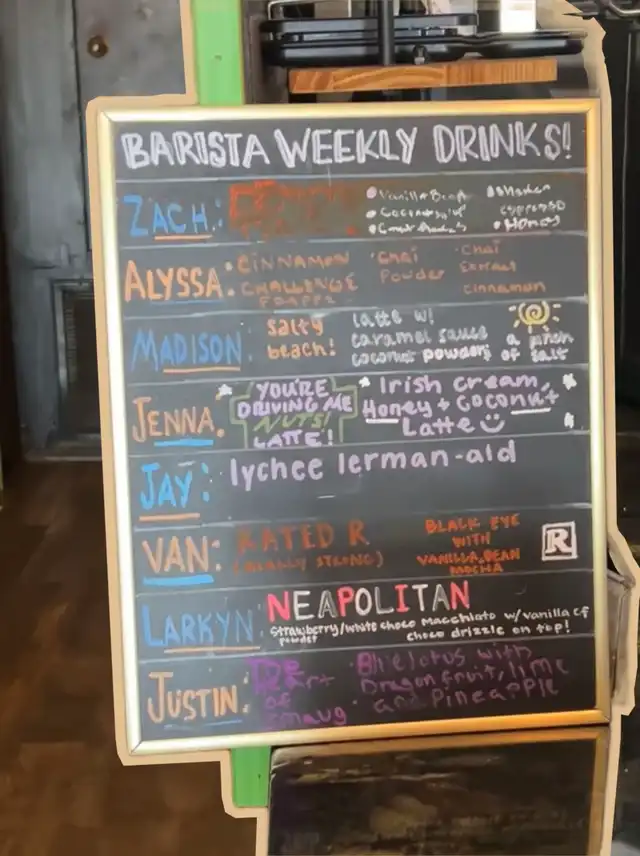 BARISTA WEEKLY DRINKS!
ZACH:
• Vanilla Bean
• Honey
espresso
ALYSSA: • CINNAMON CHALLENGE FRAPPE
• Chai Powder
• Chai Extract
cinnamon
MADISON: salty beach!
latte w/
caramel sauce
coconut powder
a pinch of salt
JENNA. YOU'RE
DRIVING ME
NUTS!
LATTE!
Irish cream,
Honey + Coconut
Latte
JAY: lychee lerman-aid
VAN: RATED R
(REALLY STRONG)
BLACK EYE
WITH
VANILLA BEAN
MOCHA
R
LARKYN: NEAPOLITAN
Strawberry/white choco Macchiato w/ vanilla cf
powder
choco drizzle on top!
JUSTIN:
of
Smaug
• Blue lotus with
Dragonfruit, lime
and Pineapple